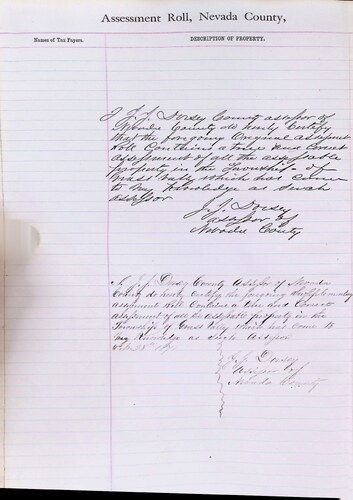 Assessment Roll, Nevada County,
Names of Tax Payers.
DESCRIPTION OF PROPERTY.
I J.J. Dorsey County assessor of
Nevada County do hereby Certify
that the foregoing Original assessment
Roll Contains a true and Correct
assessment of all the assessable
property in the Township of
Grass Valley which has come
to my Knowledge as Such
assessor
J.J. Dorsey
assessor of
Nevada County
I, J.J. Dorsey County Assessor of Nevada
County do hereby Certify the foregoing Supplementary
Assessment Roll Contains a true and Correct
assessment of all the assessable property in the
Township of Grass Valley which has come to
my Knowledge as Such Assessor
J.J. Dorsey
Assessor of
Nevada County